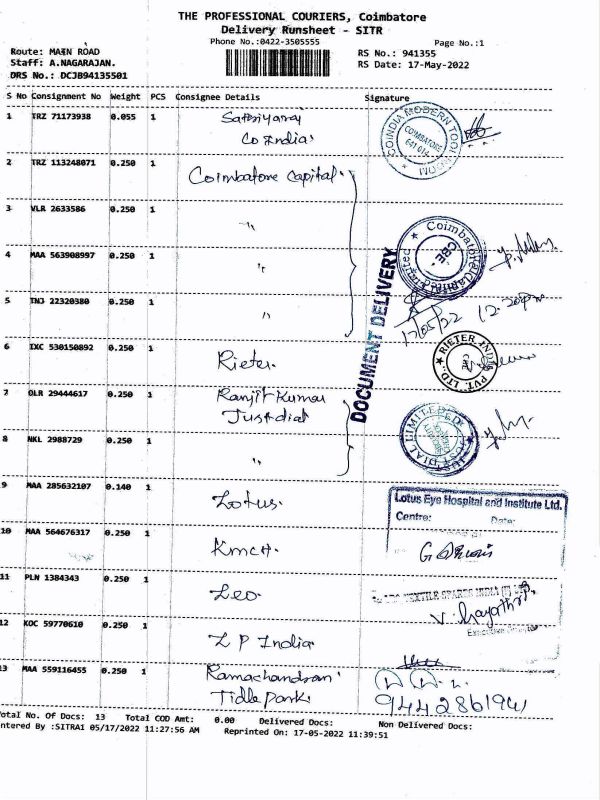 THE PROFESSIONAL COURIERS, Coimbatore
Delivery Runsheet - SITR
Phone No.:0422-3505555
Page No.:1
Route: MAIN ROAD
RS No.: 941355
Staff: A.NAGARAJAN.
RS Date: 17-May-2022
DRS No.: DCJB94135501
S No Consignment No Weight PCS Consignee Details Signature
1 TRZ 71173938 0.055 1 Sathiyaraj
Co India.
COINDIA MODERN TOOL ROOM
COIMBATORE
641 014
2 TRZ 113248071 0.250 1 Coimbatore Capital.
3 VLR 2633586 0.250 1 "
Coimbatore
CBE
4 MAA 563908997 0.250 1 "
DOCUMENT DELIVERY
5 TNJ 22320380 0.250 1 "
17/05/22 12.20pm
6 IXC 530150892 0.250 1 Rieter.
RIETER INDIA PVT. LTD.
7 OLR 29444617 0.250 1 Ranjit Kumar
Justdial
JUST DIAL LIMITED
8 NKL 2988729 0.250 1 "
9 MAA 285632107 0.140 1 Lotus.
Lotus Eye Hospital and Institute Ltd.
Centre: Date:
10 MAA 564676317 0.250 1 KMCH.
11 PLN 1384343 0.250 1 Leo.
TEXTILE SPARES INDIA (P) LTD.
V. Gayathri
Executive
12 KOC 59770610 0.250 1 L P India
13 MAA 559116455 0.250 1 Ramachandran.
Tidle park.
9442861941
Total No. Of Docs: 13 Total COD Amt: 0.00 Delivered Docs: Non Delivered Docs:
ntered By :SITRA1 05/17/2022 11:27:56 AM Reprinted On: 17-05-2022 11:39:51